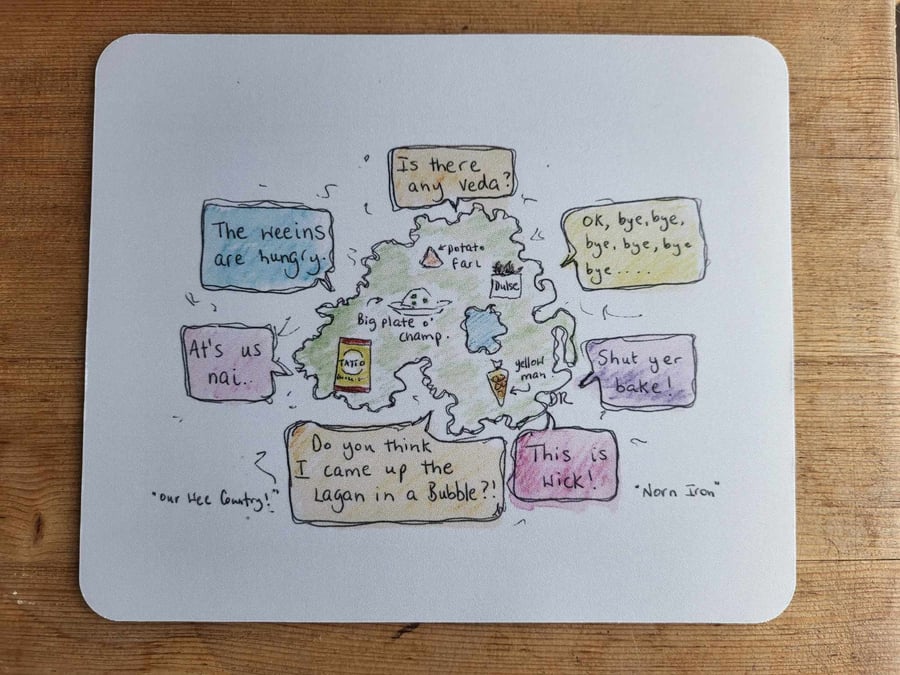 Is there
any veda?
The weeins
are hungry.
OK, bye, bye,
bye, bye, bye
bye.....
potato
farl
Dulse
Big plate o'
champ.
At's us
nai..
TAYTO
yellow
man
Shut yer
bake!
Do you think
I came up the
Lagan in a Bubble?!
This is
wick!
"Our Wee Country!"
"Norn Iron"